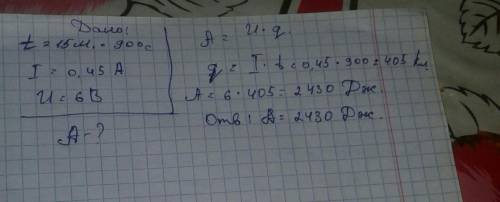 Дано:
t = 15м. = 900с
I = 0,45 А
U = 6В
А - ?
A = U · q
q = I · t = 0,45 · 900 = 405 Кл.
A = 6 · 405 = 2430 Дж.
Отв: A = 2430 Дж.